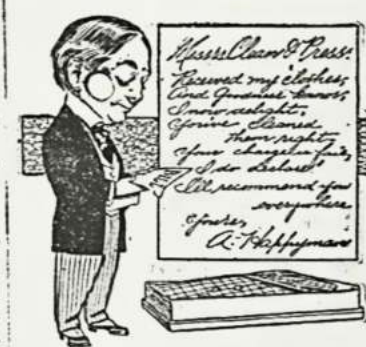 Messrs Clean & Press:
Received my clothes,
And Goodness knows,
I now delight,
You've cleaned
them right
Your charges fair,
I do declare
I'll recommend you
everywhere
Yours,
A. Happyman